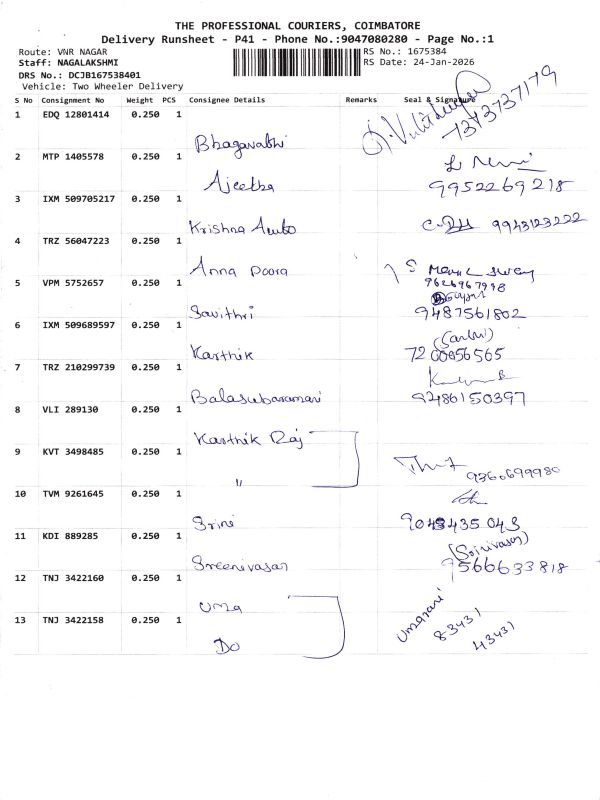 THE PROFESSIONAL COURIERS, COIMBATORE
Delivery Runsheet - P41 - Phone No.:9047080280 - Page No.:1
Route: VNR NAGAR
RS No.: 1675384
Staff: NAGALAKSHMI
RS Date: 24-Jan-2026
DRS No.: DCJB167538401
Vehicle: Two Wheeler Delivery
S No Consignment No Weight PCS Consignee Details Remarks Seal & Signature
1 EDQ 12801414 0.250 1
7373737179
Bhagavathi
2 MTP 1405578 0.250 1
Ajeetha 9952269218
3 IXM 509705217 0.250 1
Krishna Auto 9943123222
4 TRZ 56047223 0.250 1
Anna Poora
5 VPM 5752657 0.250 1
9626967998
Savithri 9487561802
6 IXM 509689597 0.250 1
Karthik 7200056565
7 TRZ 210299739 0.250 1
Balasubaramani 9486150397
8 VLI 289130 0.250 1
Karthik Raj
9 KVT 3498485 0.250 1
"
9360699980
10 TVM 9261645 0.250 1
Srini 9043435043
11 KDI 889285 0.250 1
(Srinivasan)
Sreenivasan 9566633818
12 TNJ 3422160 0.250 1
Uma
Umarani
83431
43431
13 TNJ 3422158 0.250 1
Do